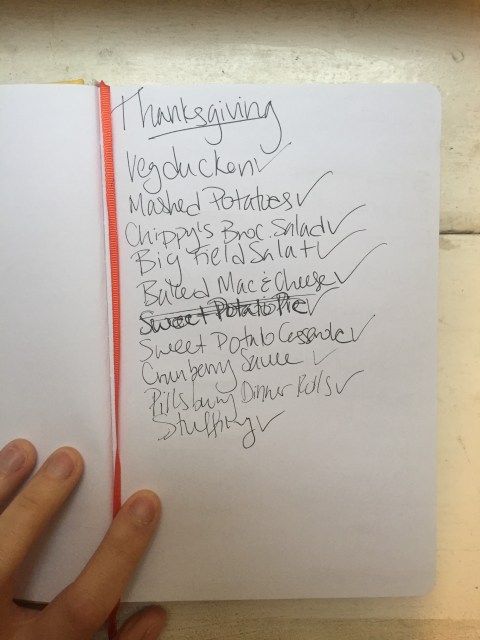 Thanksgiving
Vegducken ✓
Mashed Potatoes ✓
Chippy's Broc. Salad ✓
Big Field Salat ✓
Baked Mac & Cheese ✓
Sweet Potato Pie ✓
Sweet Potato Casserole ✓
Cranberry Sauce ✓
Pillsbury Dinner Rolls ✓
Stuffing ✓